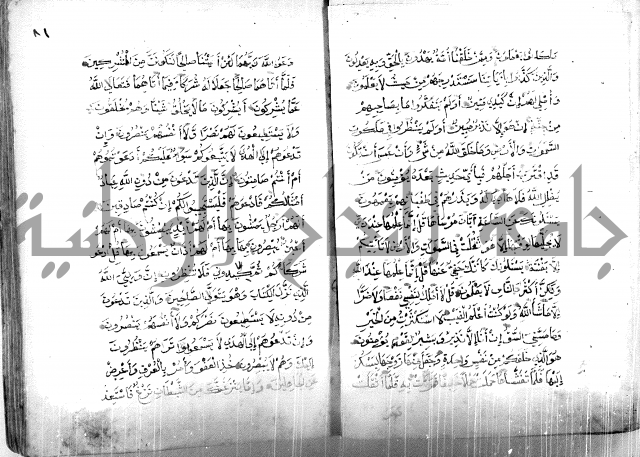 ما كانوا يعملون وممن خلقنا أمة يهدون بالحق وبه يعدلون
والذين كذبوا بآياتنا سنستدرجهم من حيث لا يعلمون
وأملي لهم إن كيدي متين أولم يتفكروا ما بصاحبهم
من جنة إن هو إلا نذير مبين أولم ينظروا في ملكوت
السموات والأرض وما خلق الله من شيء وأن عسى أن يكون
قد اقترب أجلهم فبأي حديث بعده يؤمنون من
يضلل الله فلا هادي له ويذرهم في طغيانهم يعمهون
يسئلونك عن الساعة أيان مرساها قل إنما علمها عند ربي
لا يجليها لوقتها إلا هو ثقلت في السموات والأرض لا تأتيكم
إلا بغتة يسئلونك كأنك حفي عنها قل إنما علمها عند الله
ولكن أكثر الناس لا يعلمون قل لا أملك لنفسي نفعا ولا ضرا
إلا ما شاء الله ولو كنت أعلم الغيب لاستكثرت من الخير
وما مسني السوء إن أنا إلا نذير وبشير لقوم يؤمنون
هو الذي خلقكم من نفس واحدة وجعل منها زوجها ليسكن
إليها فلما تغشاها حملت حملا خفيفا فمرت به فلما أثقلت
٨١
دعوا الله ربهما لئن آتيتنا صالحا لنكونن من الشاكرين
فلما آتاهما صالحا جعلا له شركاء فيما آتاهما فتعالى الله
عما يشركون أيشركون ما لا يخلق شيئا وهم يخلقون
ولا يستطيعون لهم نصرا ولا أنفسهم ينصرون وإن
تدعوهم إلى الهدى لا يتبعوكم سواء عليكم أدعوتموهم
أم أنتم صامتون إن الذين تدعون من دون الله عباد
أمثالكم فادعوهم فليستجيبوا لكم إن كنتم صادقين
ألهم أرجل يمشون بها أم لهم أيد يبطشون بها أم لهم
أعين يبصرون بها أم لهم آذان يسمعون بها قل ادعوا
شركاءكم ثم كيدون فلا تنظرون إن وليي الله
الذي نزل الكتاب وهو يتولى الصالحين والذين تدعون
من دونه لا يستطيعون نصركم ولا أنفسهم ينصرون
وإن تدعوهم إلى الهدى لا يسمعوا وتراهم ينظرون
إليك وهم لا يبصرون خذ العفو وأمر بالعرف وأعرض
عن الجاهلين وإما ينزغنك من الشيطان نزغ فاستعذ
جامعة النجاح الوطنية